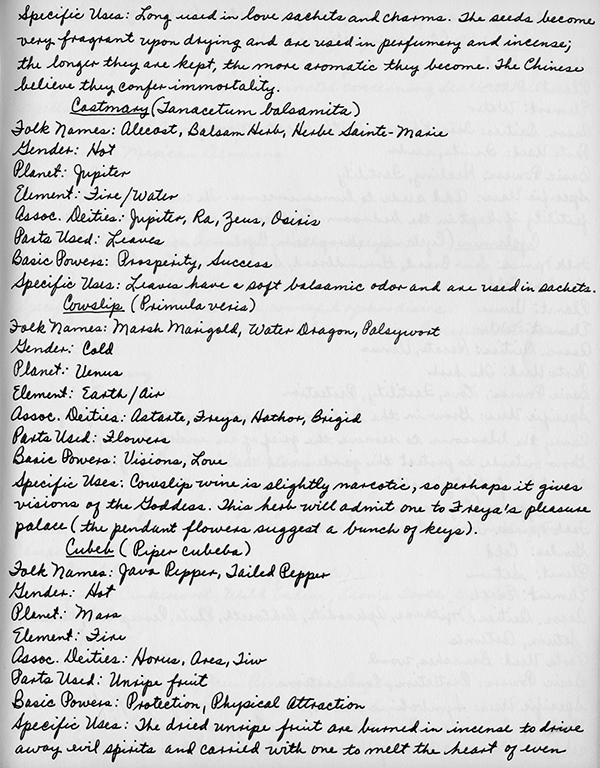 Specific Uses: Long used in love sachets and charms. The seeds become
very fragrant upon drying and are used in perfumery and incense;
the longer they are kept, the more aromatic they become. The Chinese
believe they confer immortality.
Costmary (Tanacetum balsamita)
Folk Names: Alecost, Balsam Herb, Herbe Sainte-Marie
Gender: Hot
Planet: Jupiter
Element: Fire/Water
Assoc. Deities: Jupiter, Ra, Zeus, Osiris
Parts Used: Leaves
Basic Powers: Prosperity, Success
Specific Uses: Leaves have a soft balsamic odor and are used in sachets.
Cowslip (Primula veris)
Folk Names: Marsh Marigold, Water Dragon, Palsywort
Gender: Cold
Planet: Venus
Element: Earth/Air
Assoc. Deities: Astarte, Freya, Hathor, Brigid
Parts Used: Flowers
Basic Powers: Visions, Love
Specific Uses: Cowslip wine is slightly narcotic, so perhaps it gives
visions of the Goddess. This herb will admit one to Freya's pleasure
palace (the pendant flowers suggest a bunch of keys).
Cubeb (Piper cubeba)
Folk Names: Java Pepper, Tailed Pepper
Gender: Hot
Planet: Mars
Element: Fire
Assoc. Deities: Horus, Ares, Tiw
Parts Used: Unripe fruit
Basic Powers: Protection, Physical Attraction
Specific Uses: The dried unripe fruit are burned in incense to drive
away evil spirits and carried with one to melt the heart of even